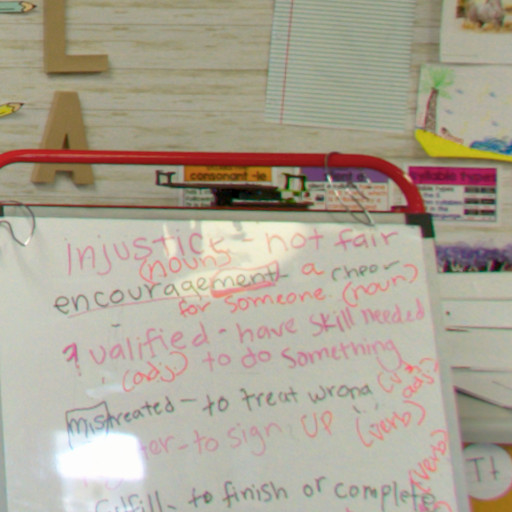 L
A
consonant -le
syllable types
injustice - not fair
(noun)
encouragement - a cheer
for someone (noun)
qualified - have skill needed
(adj.) to do something
mistreated - to treat wrong
adj)
to sign up (verb)
(verb)
fulfill - to finish or complete